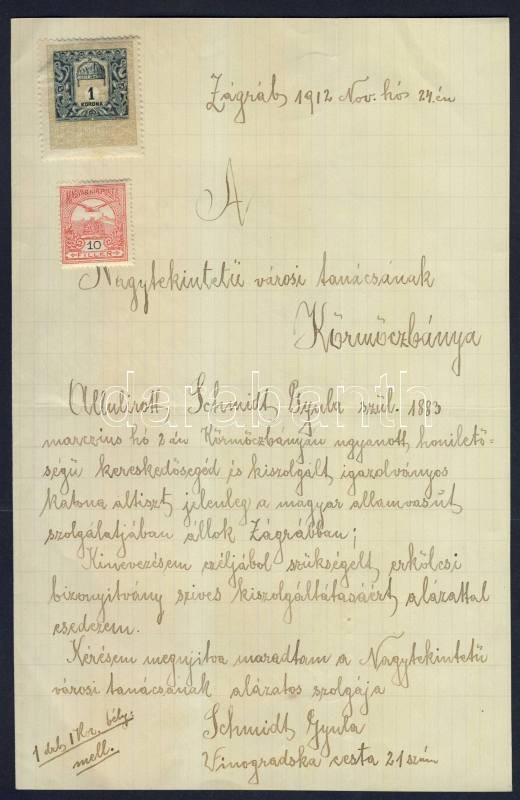 1
KORONA
MAGYAR KIR. POSTA
10
FILLÉR
Zágráb, 1912 Nov. hó 24.én
A
Nagytekintetü városi tanácsának
Körmöczbánya
darabanth
Allulirott, Schmidt Gyula szül. 1883
marczius hó 2 án Körmöczbányán ugyanott, honiletö=
ségü kereskedösegéd és kiszolgált, igazolványos
katona altiszt, jelenleg a magyar allamvasút
szolgálatjában állok Zágrábban;
Kinevezésem czéljából szükségelt, erkölcsi
bizonyitvány szives kiszolgáltatásáért, alázattal
esedezem.
Kérésem megujitva maradtam a Nagytekintetü
városi tanácsának alázatos szolgája
Schmidt Gyula
Vinogradska cesta 21 szám
1 drb. 1 Kr. bély.
mell.